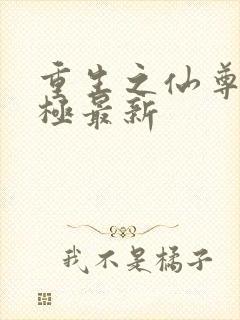 重生之仙尊
極最新
我不是橘子